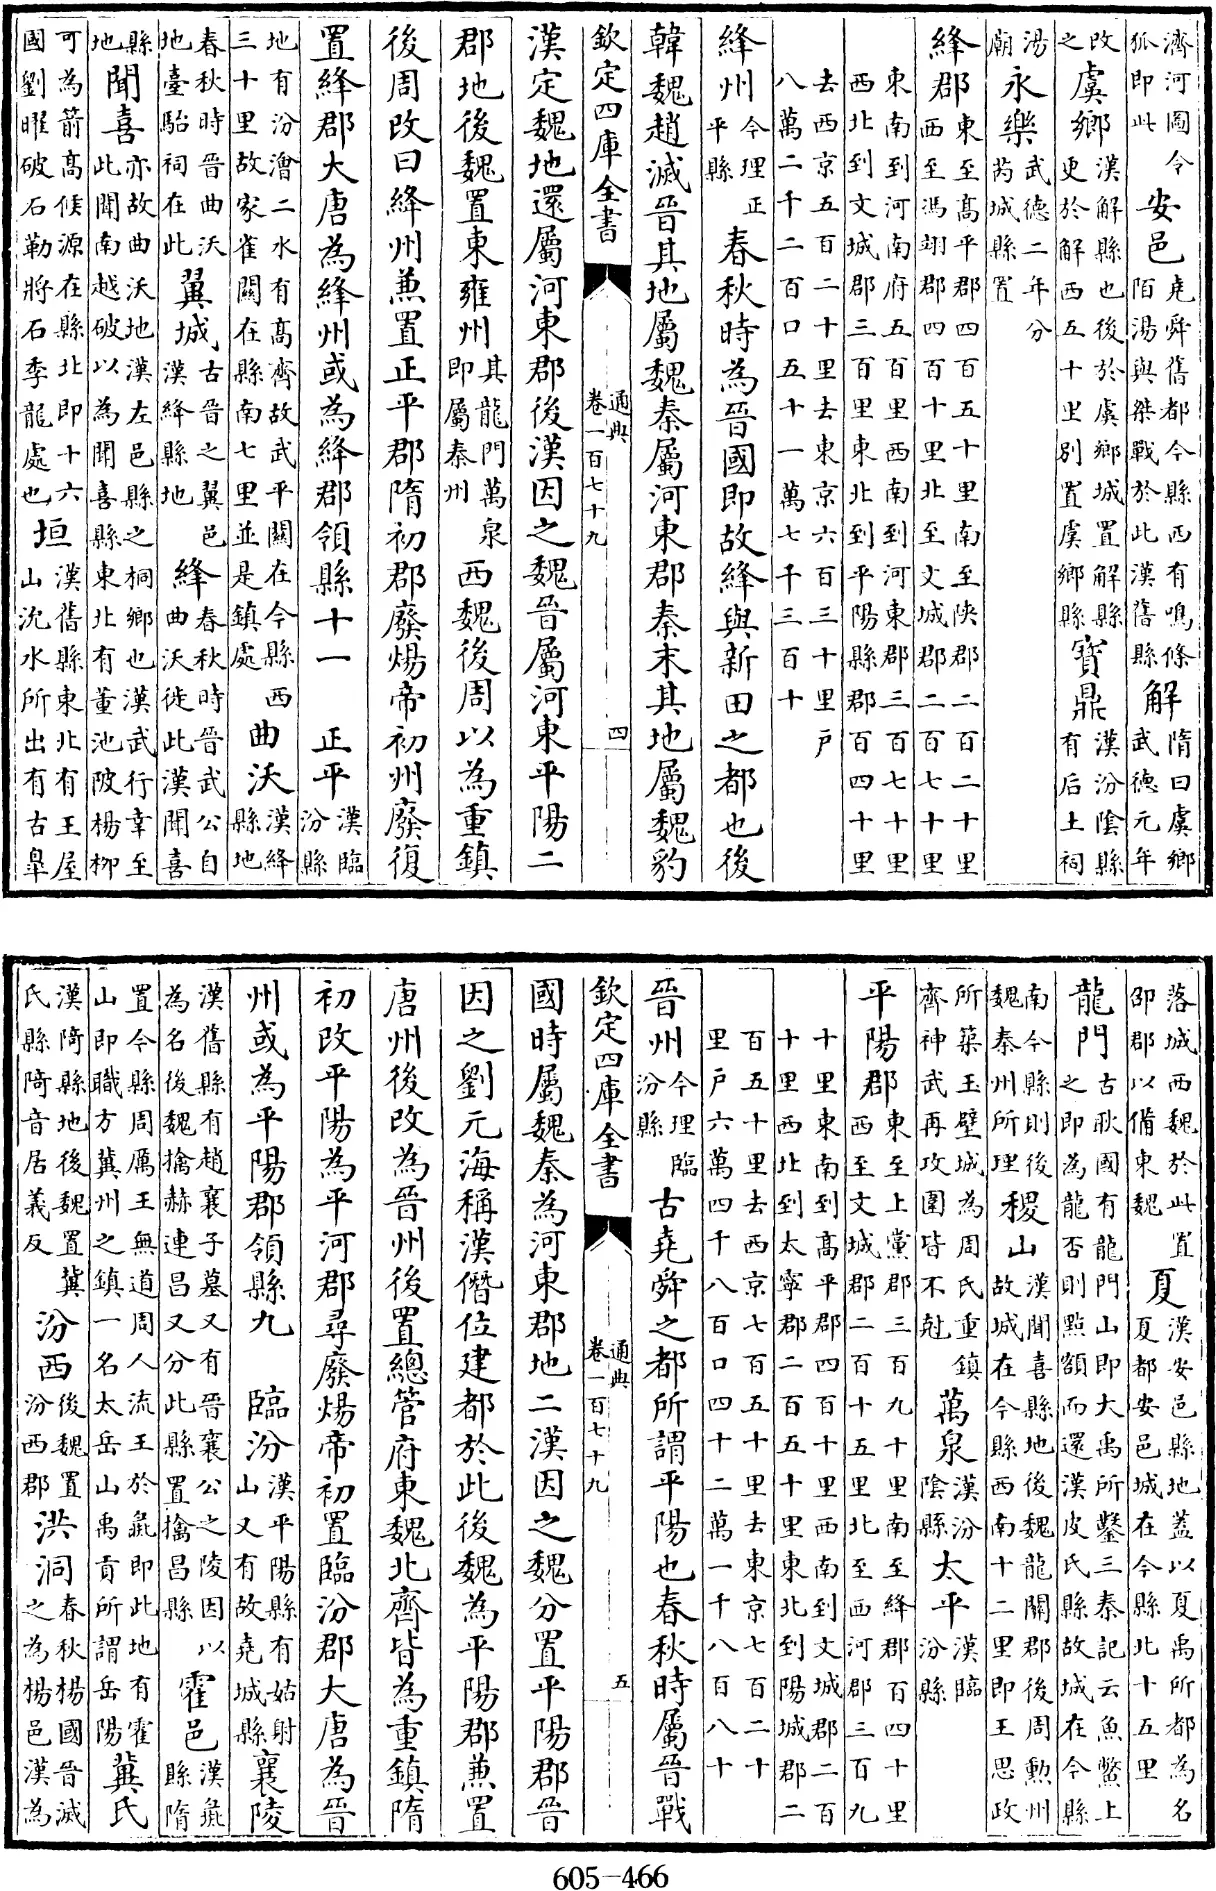 濟河圖今狐即此 安邑 堯舜舊都今縣西有鳴條陌湯與桀戰於此漢舊縣 解 隋曰虞鄉武德元年
改之 虞鄉 漢解縣也後於虞鄉城置解縣更於解西五十里別置虞鄉縣 寶鼎 漢汾陰縣有后土祠
湯廟 永樂 武德二年分芮城縣置
絳郡 東至髙平郡四百五十里南至陜郡二百二十里西至馮翊郡四百十里北至文城郡二百七十里
東南到河南府五百里西南到河東郡三百七十里西北到文城郡三百里東北到平陽縣郡百四十里
去西京五百二十里去東京六百三十里戸八萬二千二百口五十一萬七千三百十
絳州 今理正平縣 春秋時為晉國即故絳與新田之都也後
韓魏趙滅晉其地屬魏秦屬河東郡秦末其地屬魏豹
欽定四庫全書 通典卷一百七十九 四
漢定魏地還屬河東郡後漢因之魏晉屬河東平陽二
郡地後魏置東雍州 其龍門萬泉即屬秦州 西魏後周以為重鎮
後周改曰絳州兼置正平郡隋初郡廢煬帝初州廢復
置絳郡大唐為絳州或為絳郡領縣十一 正平 漢臨汾縣
地有汾澮二水有髙齊故武平關在今縣西三十里故家雀關在縣南七里並是鎮處 曲沃 漢絳縣地
春秋時晉曲沃地臺駘祠在此 翼城 古晉之翼邑漢絳縣地 絳 春秋時晉武公自曲沃徙此漢聞喜
縣地 聞喜 亦故曲沃地漢左邑縣之桐鄉也漢武行幸至此聞南越破以為聞喜縣東北有董池陂楊栁
可為箭髙候源在縣北即十六國劉曜破石勒將石季龍處也 垣 漢舊縣東北有王屋山沇水所出有古臯
落城西魏於此置邵郡以備東魏 夏 漢安邑縣地蓋以夏禹所都為名夏都安邑城在今縣北十五里
龍門 古耿國有龍門山即大禹所鑿三秦記云魚鼈上之即為龍否則點額而還漢皮氏縣故城在今縣
南今縣則後魏秦州所理 稷山 漢聞喜縣地後魏龍關郡後周勲州故城在今縣西南十二里即王思政
所築玉壁城為周氏重鎮齊神武再攻圍皆不尅 萬泉 漢汾陰縣 太平 漢臨汾縣
平陽郡 東至上黨郡三百九十里南至絳郡百四十里西至文城郡二百十五里北至西河郡三百九
十里東南到髙平郡四百十里西南到文城郡二百十里西北到太寧郡二百五十里東北到陽城郡二
百五十里去西京七百五十里去東京七百二十里戸六萬四千八百口四十二萬一千八百八十
晉州 今理臨汾縣 古堯舜之都所謂平陽也春秋時屬晉戰
欽定四庫全書 通典卷一百七十九 五
國時屬魏秦為河東郡地二漢因之魏分置平陽郡晉
因之劉元海稱漢僭位建都於此後魏為平陽郡兼置
唐州後改為晉州後置總管府東魏北齊皆為重鎮隋
初改平陽為平河郡尋廢煬帝初置臨汾郡大唐為晉
州或為平陽郡領縣九 臨汾 漢平陽縣有姑射山又有故堯城縣 襄陵
漢舊縣有趙襄子墓又有晉襄公之陵因以為名後魏擒赫連昌又分此縣置擒昌縣 霍邑 漢彘縣隋
置今縣周厲王無道周人流王於彘即此地有霍山即職方冀州之鎮一名太岳山禹貢所謂岳陽 冀氏
漢陭縣地後魏置冀氏縣陭音居義反 汾西 後魏置汾西郡 洪洞 春秋楊國晉滅之為楊邑漢為
605-466